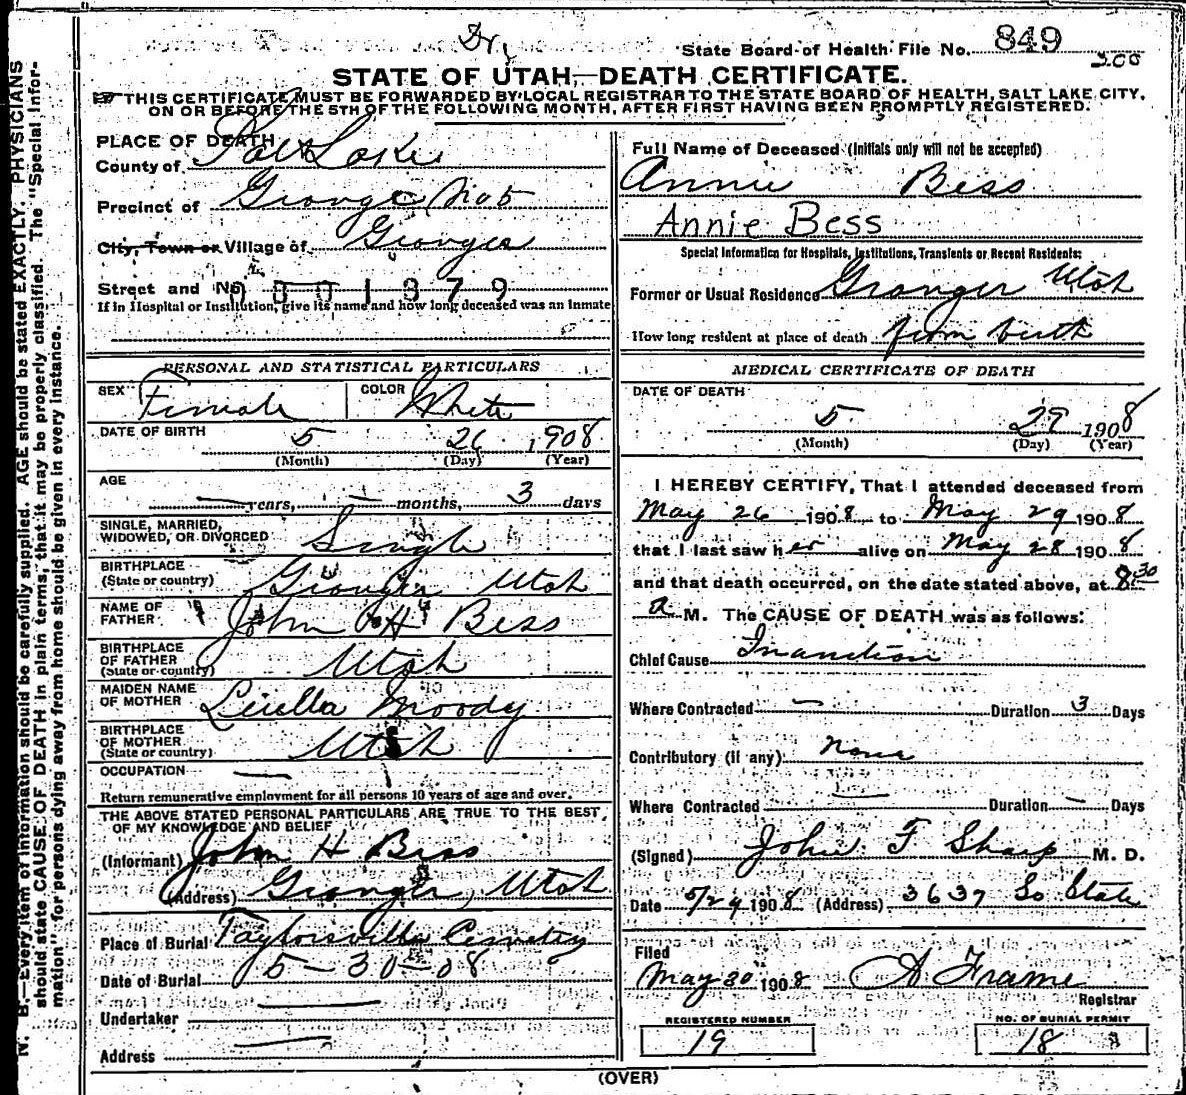 Dr.
State Board of Health File No. 849
STATE OF UTAH—DEATH CERTIFICATE.
THIS CERTIFICATE MUST BE FORWARDED BY LOCAL REGISTRAR TO THE STATE BOARD OF HEALTH, SALT LAKE CITY,
ON OR BEFORE THE 5TH OF THE FOLLOWING MONTH, AFTER FIRST HAVING BEEN PROMPTLY REGISTERED.
PLACE OF DEATH
County of Salt Lake
Precinct of Granger No 5
City, Town or Village of Granger
Street and No. 1301379
If in Hospital or Institution, give its name and how long deceased was an inmate
PERSONAL AND STATISTICAL PARTICULARS
SEX Female COLOR White
DATE OF BIRTH 5 26 1908
(Month) (Day) (Year)
AGE
— years, — months, 3 days
SINGLE, MARRIED,
WIDOWED, OR DIVORCED Single
BIRTHPLACE
(State or country) Granger Utah
NAME OF
FATHER John H Bess
BIRTHPLACE
OF FATHER
(State or country) Utah
MAIDEN NAME
OF MOTHER Luella Moody
BIRTHPLACE
OF MOTHER
(State or country) Utah
OCCUPATION —
Return remunerative employment for all persons 10 years of age and over.
THE ABOVE STATED PERSONAL PARTICULARS ARE TRUE TO THE BEST
OF MY KNOWLEDGE AND BELIEF
(Informant) John H Bess
(Address) Granger, Utah
Place of Burial Taylorsville Cemetery
Date of Burial 5-30-08
Undertaker —
Address —
Full Name of Deceased (Initials only will not be accepted)
Annie Bess
Annie Bess
Special Information for Hospitals, Institutions, Transients or Recent Residents:
Former or Usual Residence Granger Utah
How long resident at place of death from birth
MEDICAL CERTIFICATE OF DEATH
DATE OF DEATH
5 29 1908
(Month) (Day) (Year)
I HEREBY CERTIFY, That I attended deceased from
May 26 1908 to May 29 1908
that I last saw her alive on May 28 1908
and that death occurred, on the date stated above, at 8 30
a M. The CAUSE OF DEATH was as follows:
Chief Cause Inanition
Where Contracted — Duration 3 Days
Contributory (if any) none
Where Contracted — Duration — Days
(Signed) John F Sharp M. D.
Date 5/29 1908 (Address) 3637 So State
Filed
May 30 1908 A Frame
Registrar
REGISTERED NUMBER NO. OF BURIAL PERMIT
19 18
(OVER)
N. B.—Every item of information should be carefully supplied. AGE should be stated EXACTLY. PHYSICIANS
should state CAUSE OF DEATH in plain terms, that it may be properly classified. The "Special Infor-
mation" for persons dying away from home should be given in every instance.